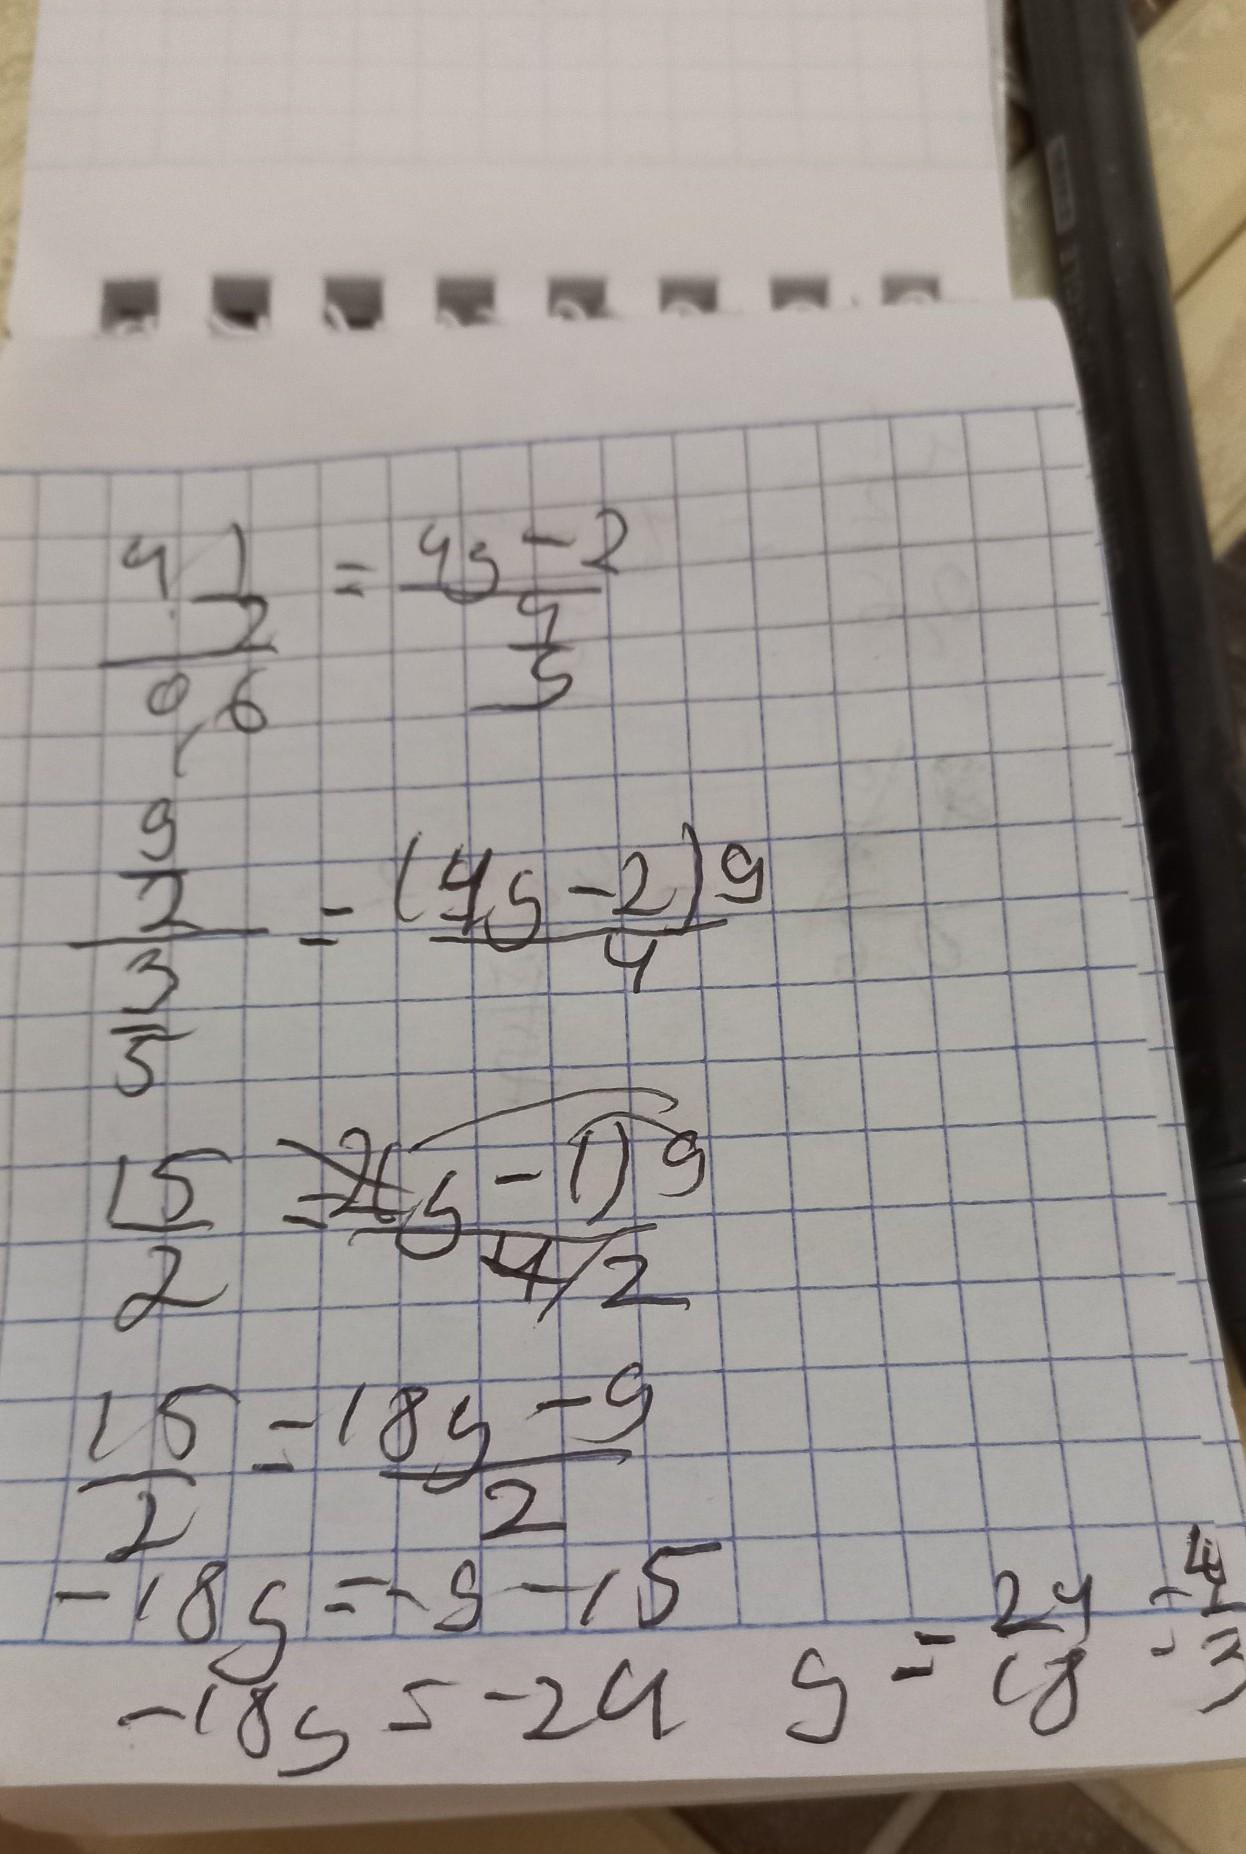 4 1/2 / 0,6 = (4y - 2) / (4/9)
(9/2) / (3/5) = (4y - 2)9 / 4
15/2 = 2(y - 1)9 / 4/2
15/2 = 18y - 9 / 2
-18y = -9 - 15
-18y = -24 y = 24/18 = 4/3